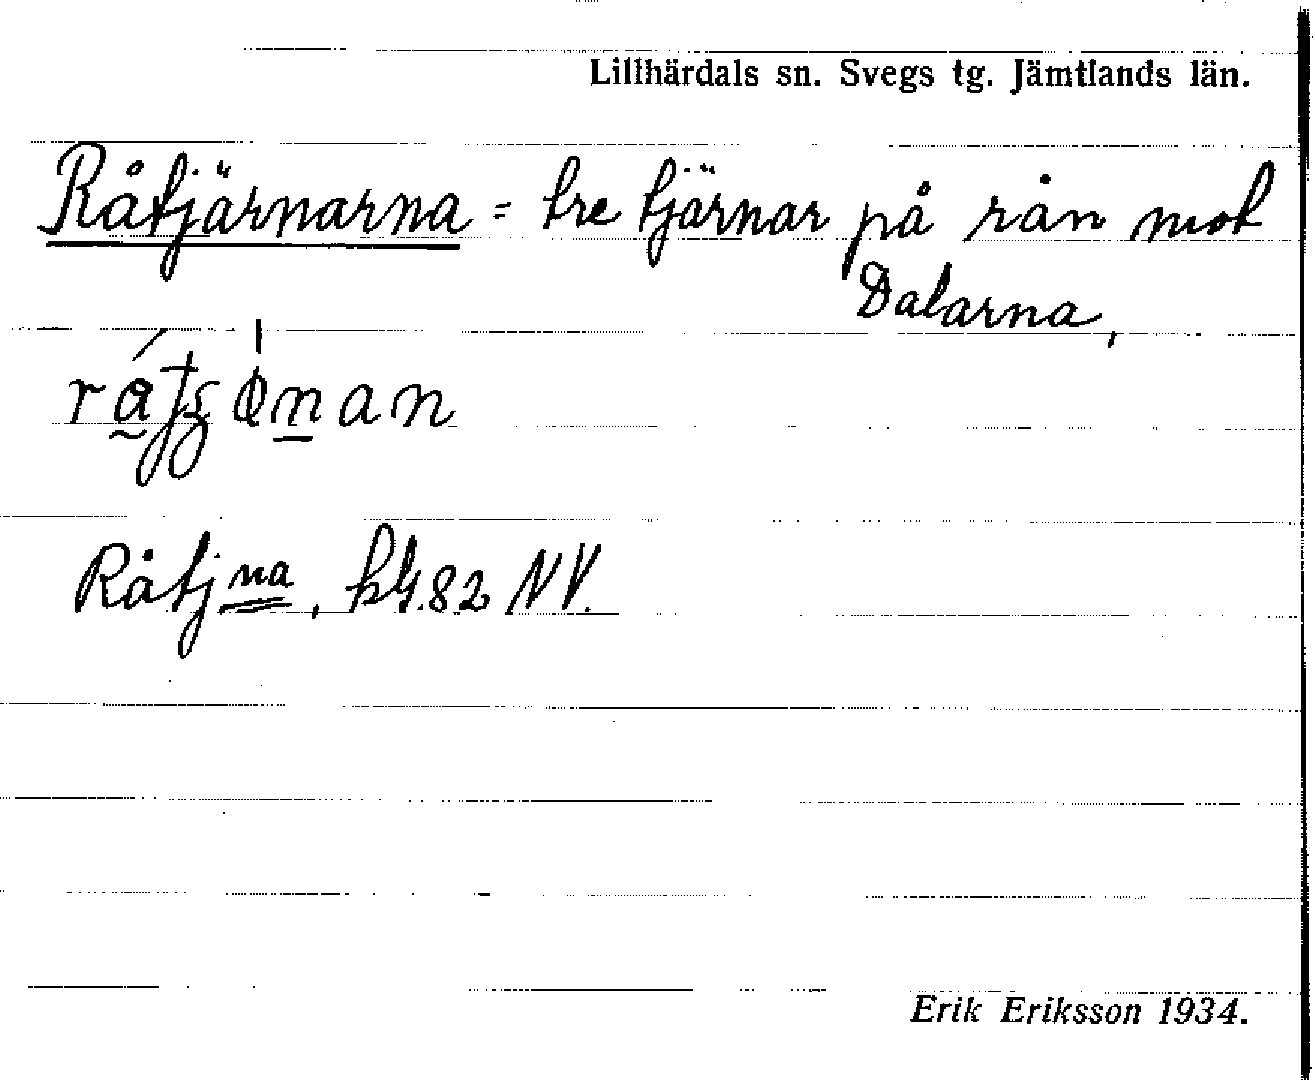 Lillhärdals sn. Svegs tg. Jämtlands län.
Råtjärnarna = tre tjärnar på rån mot
Dalarna,
Råtjna, kbl.82 NV.
Erik Eriksson 1934.